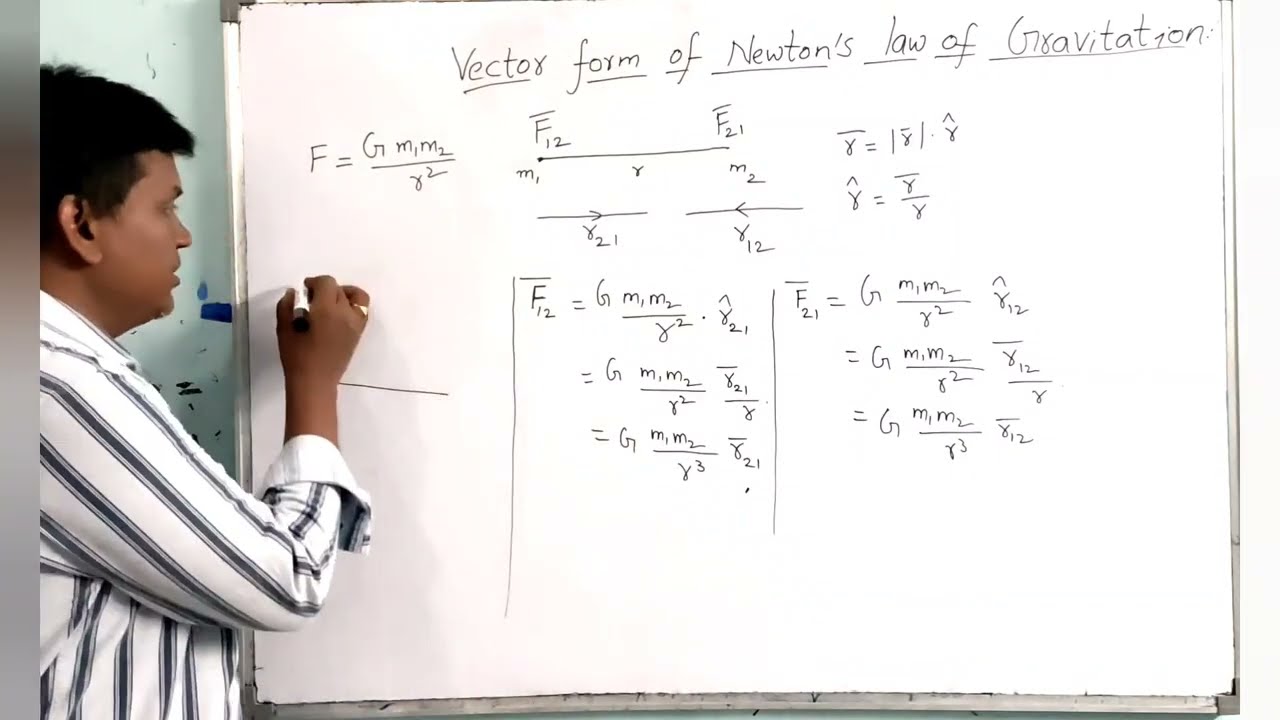 Vector form of Newton's law of Gravitation.
F = G m₁m₂ / r²
F̅₁₂ F̅₂₁
m₁ r m₂
r₂₁ r₁₂
r̅ = |r̅| · r̂
r̂ = r̅ / r
F̅₁₂ = G m₁m₂ / r² · r̂₂₁
= G m₁m₂ / r² r̅₂₁ / r
= G m₁m₂ / r³ r̅₂₁
F̅₂₁ = G m₁m₂ / r² r̂₁₂
= G m₁m₂ / r² r̅₁₂ / r
= G m₁m₂ / r³ r̅₁₂